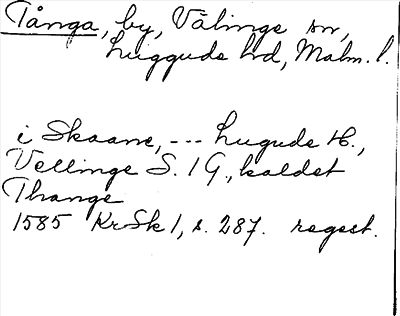 Tånga, by, Välinge sn,
Luggude hd, Malm. l.
i Skaane, --- Lugude H.,
Vellinge S. 1 G., kaldet
Thange
1585 KrSk 1, s. 287. regest.